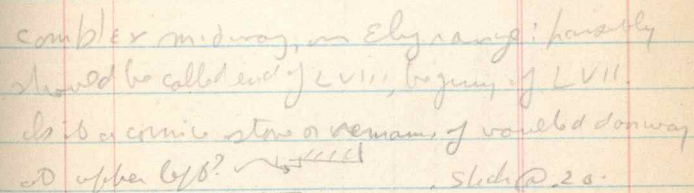 complex midway, on Ely range: possibly
should be called end of LVIII, beginng of LVII.
Is it a cornice stone or remains of vaulted doorway
at upper left?
Sketch @ 20.